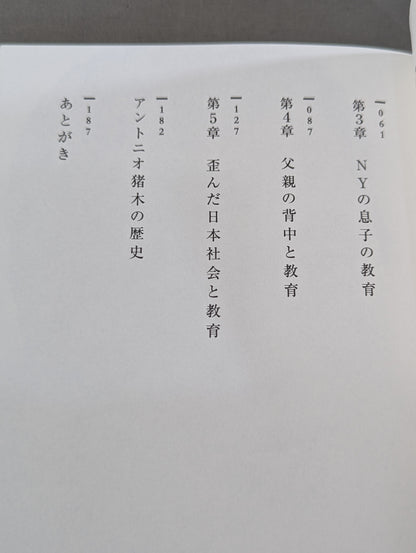 061
第3章 NYの息子の教育
087
第4章 父親の背中と教育
127
第5章 歪んだ日本社会と教育
182
アントニオ猪木の歴史
187
あとがき